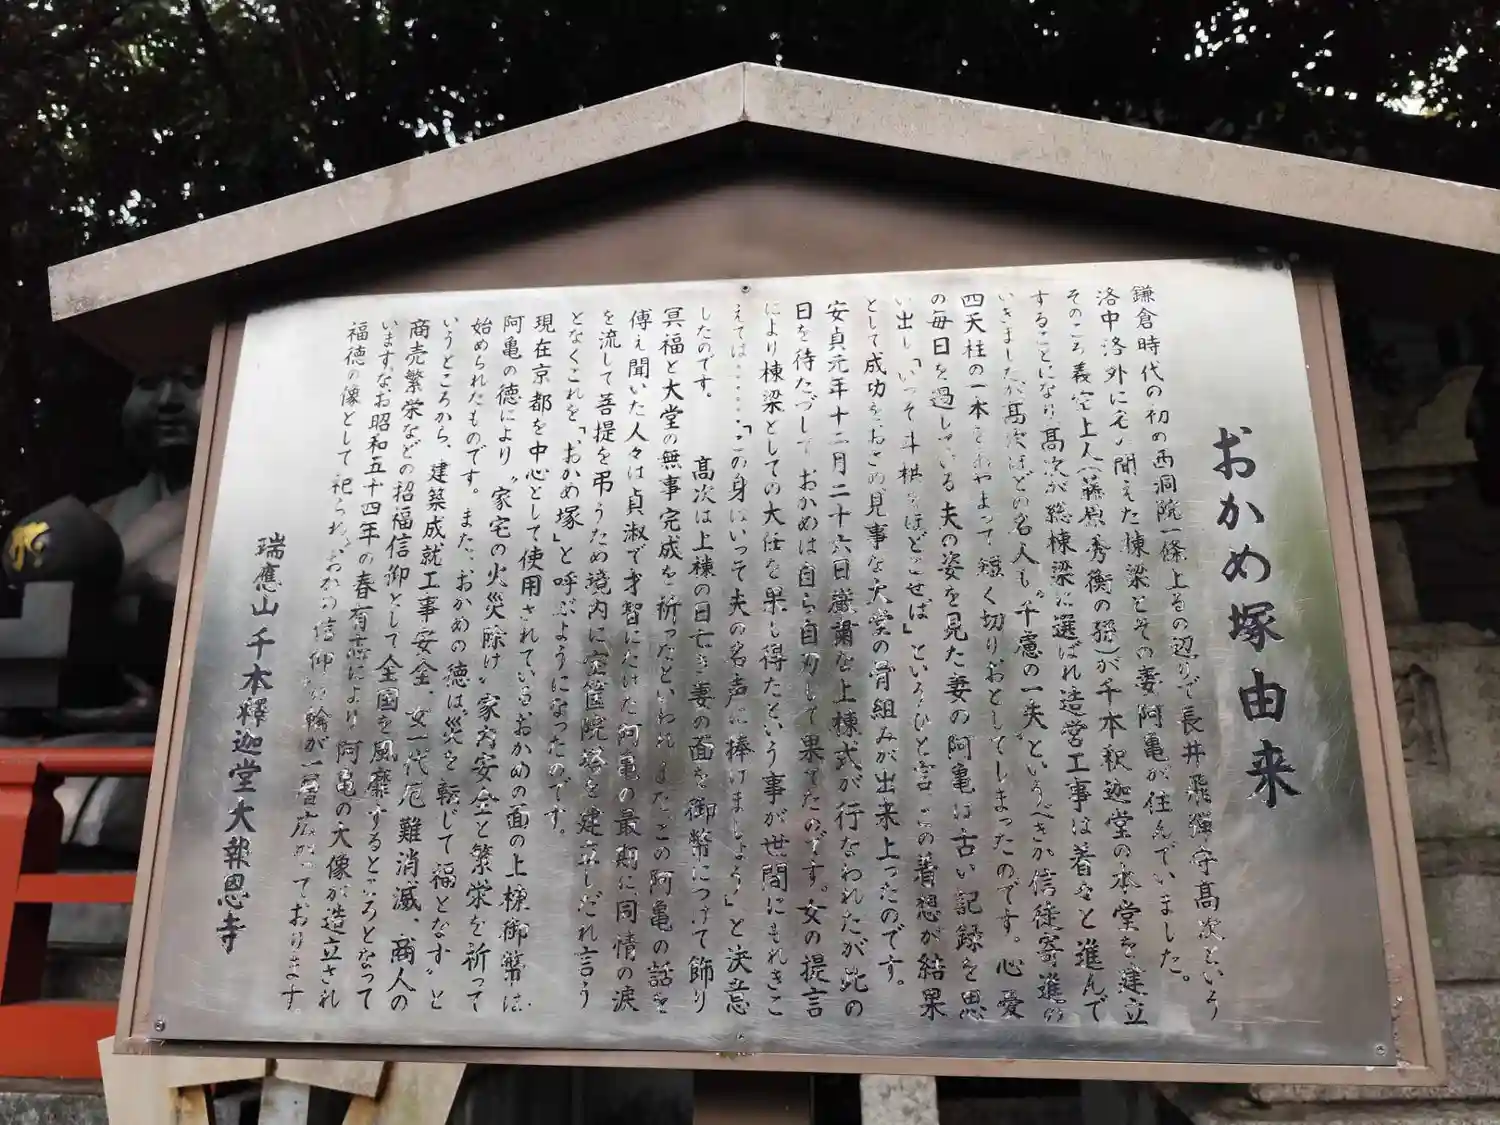 おかめ塚由来
鎌倉時代の初め西洞院一條上るの辺りで長井飛彈守高次という
洛中洛外にその名の聞えた棟梁とその妻阿亀が住んでいました。
そのころ義空上人(藤原秀衡の孫)が千本釈迦堂の本堂を建立
することになり高次が総棟梁に選ばれ造営工事は着々と進んで
いきましたが高次ほどの名人も"千慮の一失"というべきか信徒寄進の
四天柱の一本をあやまって短く切りおとしてしまったのです。心憂
の毎日を過している夫の姿を見た妻の阿亀は古い記録を思
い出し「いっそ斗栱をほどこせば」というひと言この着想が結果
として成功をおさめ見事な大堂の骨組みが出来上ったのです。
安貞元年十二月二十六日厳粛な上棟式が行なわれたが此の
日を待たづしておかめは自ら自刃して果てたのです。女の提言
により棟梁としての大任を果し得たという事が世間にもれきこ
えては……「この身はいって夫の名声に捧げましょう」と決意
したのです。 高次は上棟の日亡き妻の面を御幣につけて飾り
冥福と大堂の無事完成を祈ったといわれ、またこの阿亀の話を
傳え聞いた人々は貞淑で才智にたけた阿亀の最期に同情の涙
を流して菩提を弔うため境内に宝篋院塔を建立しだれ言う
となくこれを「おかめ塚」と呼ぶようになったのです。
現在京都を中心として使用されているおかめの面の上棟御幣は
阿亀の徳により"家宅の火災除け"家内安全と繁栄を祈って
始められたものです。また、おかめの徳は"災を転じて福となす"と
いうところから、建築成就工事安全、女一代厄難消滅、商人の
商売繁栄などの招福信仰として全国を風靡するところとなって
います、なお昭和五十四年の春有志により阿亀の大像が造立され
福徳の像として祀られ、おかめ信仰の輪が一層広がっております。
瑞應山千本釋迦堂大報恩寺